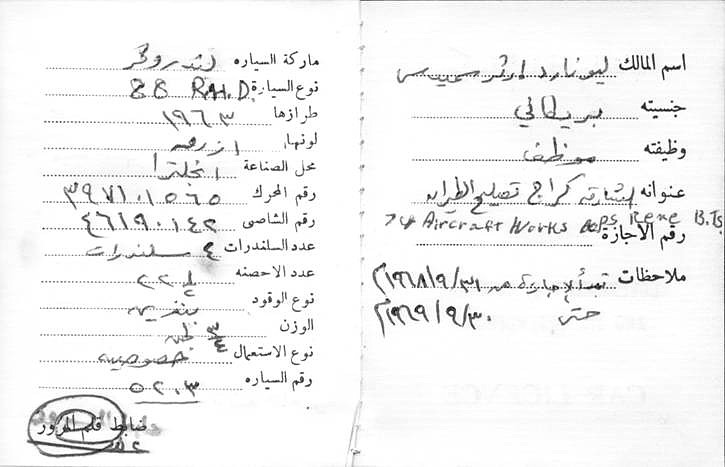 اسم المالك ليونارد ارثر سميس
جنسيته بريطاني
وظيفته موظف
عنوانه الشارقه كراج تصليح الطيران
74 Aircraft Works REME
رقم الاجازة
ملاحظات تبدأ الإجازة من ٣١/٩/١٩٦٨م
حتى ٣٠/٩/١٩٦٩م
ماركة السياره لندروفر
نوع السيارة 88 R.H.D.
طرازها ١٩٦٣
لونها ازرق
محل الصناعة انجلترا
رقم المحرك ٣٩٧١٠١٥٦٥
رقم الشاصى ٤٦١٩٠١٤٢
عدد السلندرات ٤ سلندرات
عدد الاحصنه
نوع الوقود بنزين
الوزن ٣/٤ طن
نوع الاستعمال خصوصي
رقم السياره ٥٢٠٣
ضابط قلم المرور